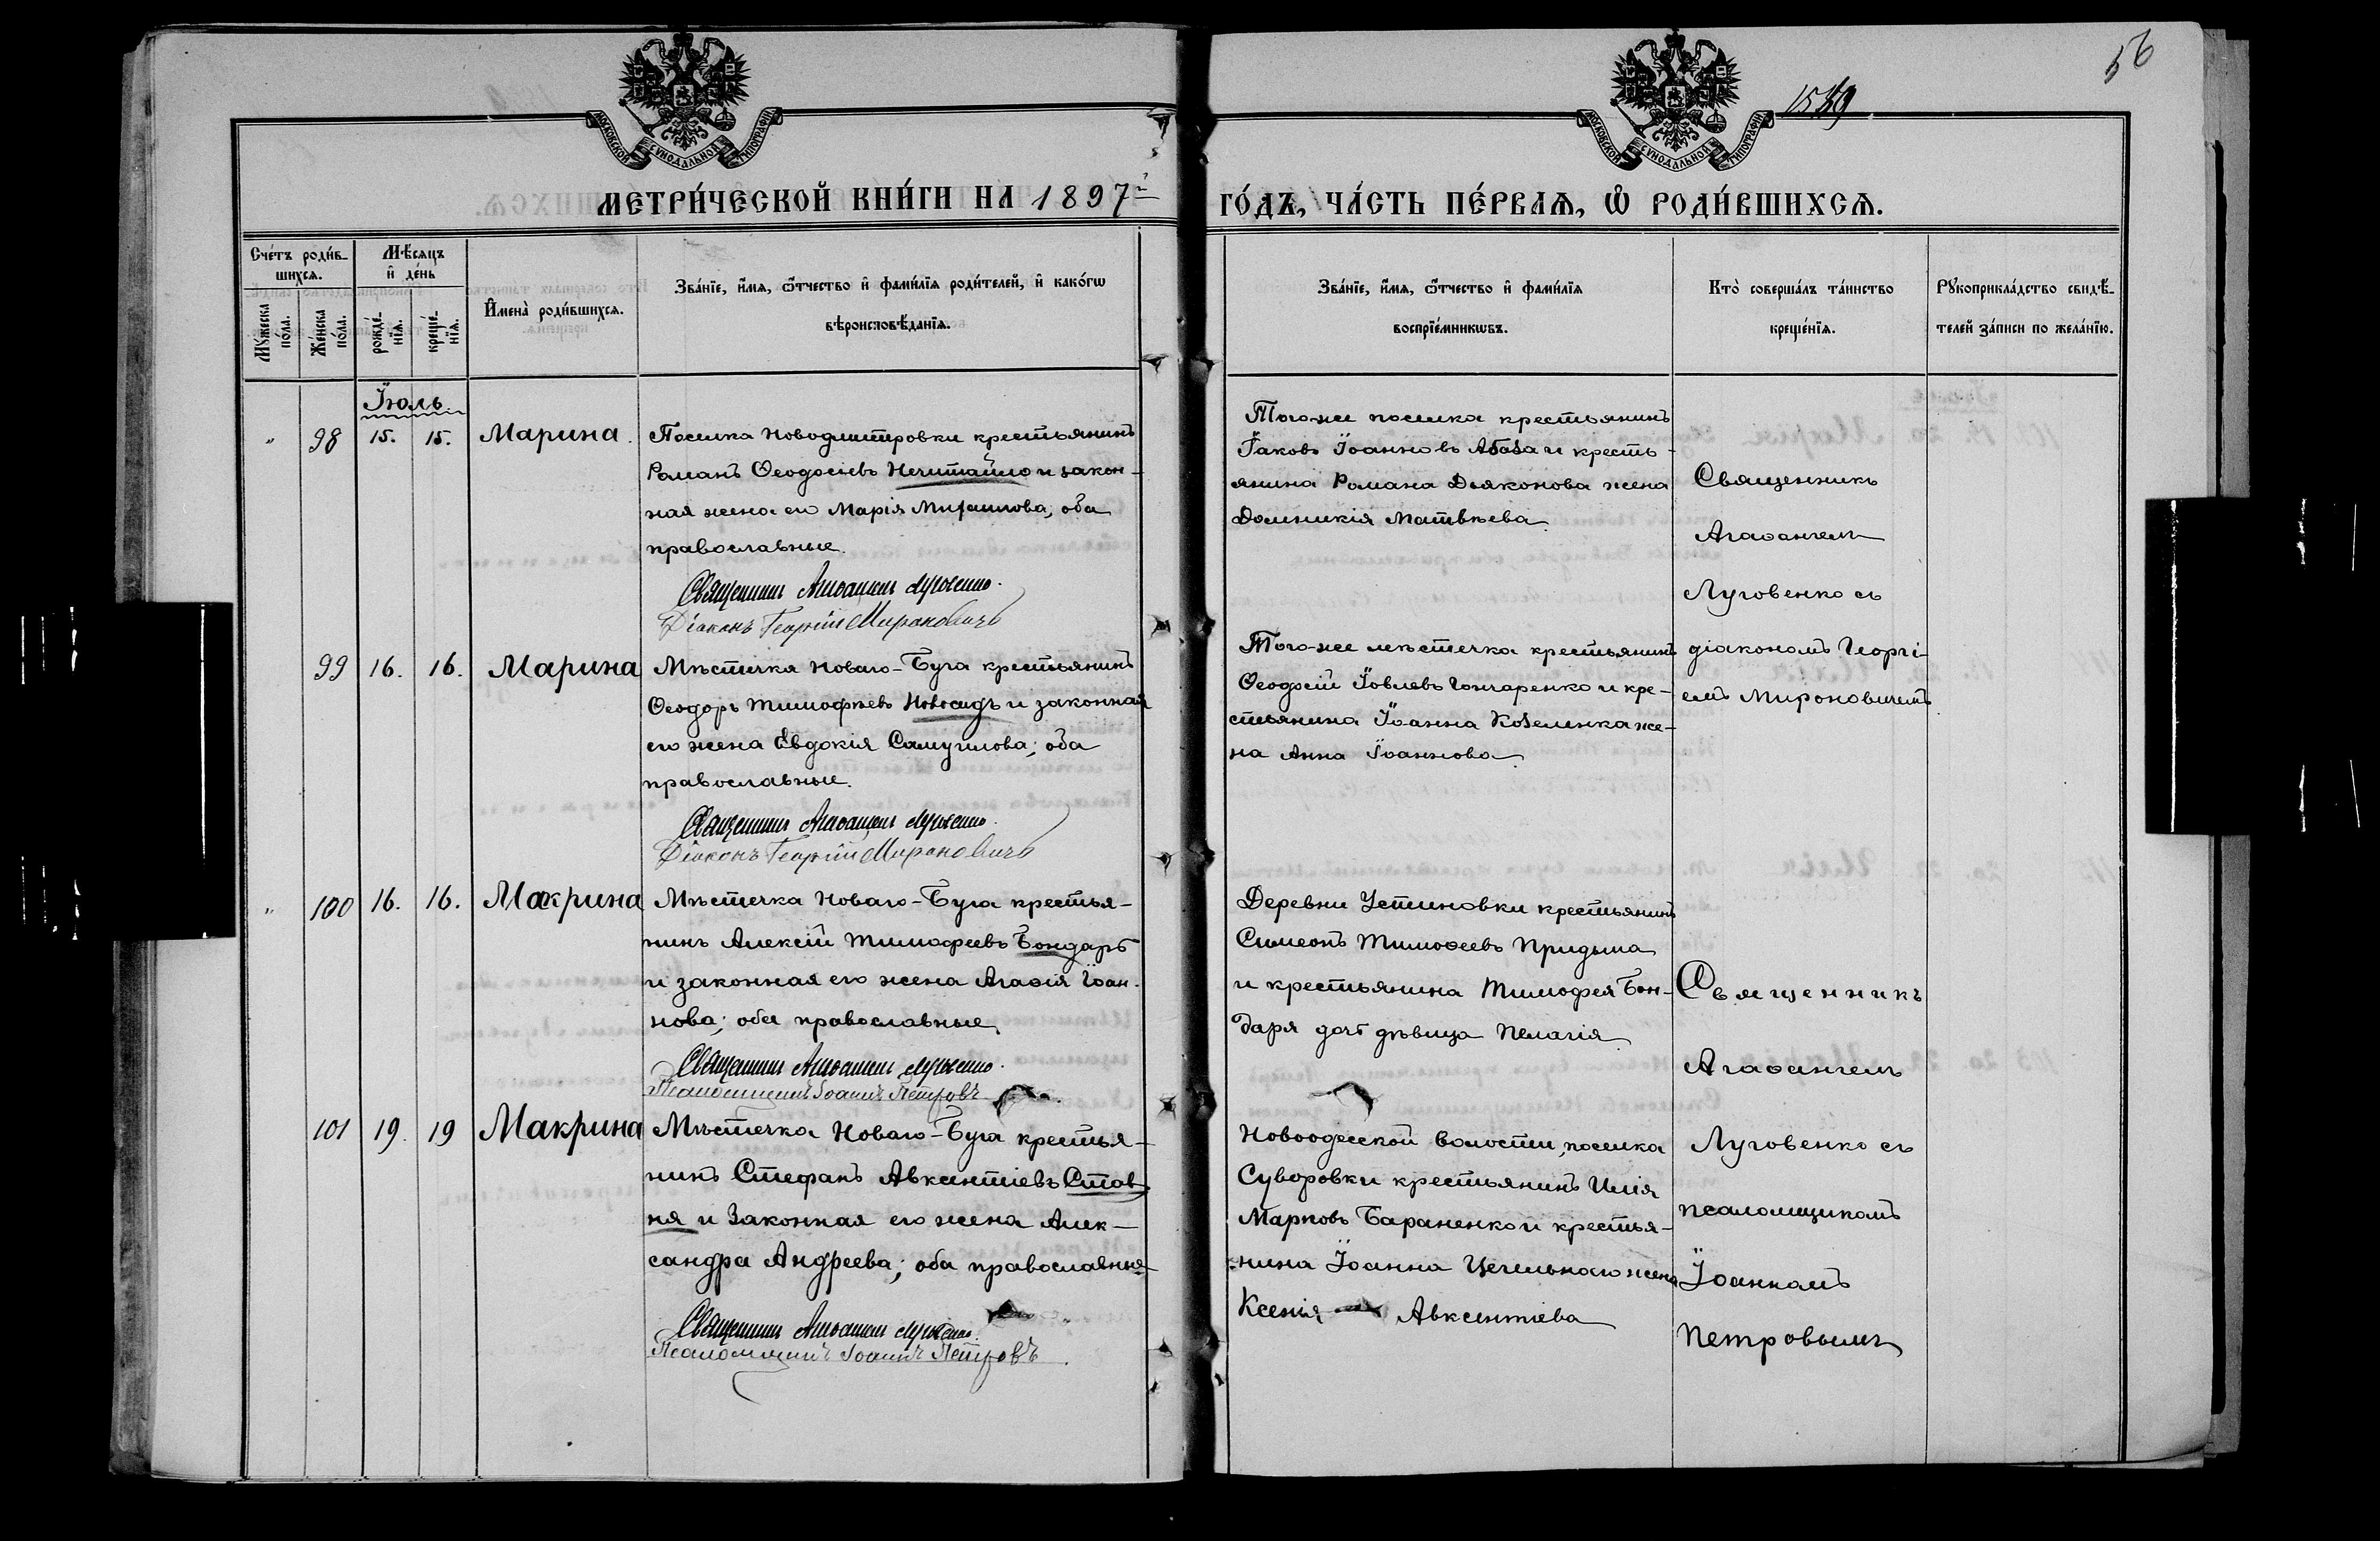 56
1539
МОСКОВСКОЙ СѴНОДАЛЬНОЙ ТИПОГРАФІИ
МОСКОВСКОЙ СѴНОДАЛЬНОЙ ТИПОГРАФІИ
МЕТРИ́ЧЕСКОЙ КНИ́ГИ НА 1897й
ГО́ДЪ, ЧА́СТЬ ПЕ́РВАѦ, Ѡ҆ РОДИ́ВШИХСѦ.
Сче́тъ роди́в-
шихсѧ.
Мꙋ́жеска по́ла.
Же́нска по́ла.
Мѣ́сѧцъ
и҆ де́нь
рожде́-
нїѧ.
креще́-
нїѧ.
И҆мена̀ роди́вшихсѧ.
Зва́нїе, и҆́мѧ, ѻ҆́тчество и҆ фами́лїѧ роди́телей, и҆ како́гѡ
вѣроисповѣ́данїѧ.
Зва́нїе, и҆́мѧ, ѻ҆́тчество и҆ фами́лїѧ
воспрїе́мникѡвъ.
Кто̀ соверша́лъ та́инство
креще́нїѧ.
Рꙋкоприкла́дство свидѣ́-
телей за́писи по жела́нїю.
Іюль
" 98 15. 15. Марина.
Поселка Новодмитровки крестьянинъ
Романъ Ѳеодосіевъ Нечитайло и закон-
ная жена его Марія Михаилова, оба
православные.
Священникъ Агаѳангелъ Луговенко.
Діаконъ Георгій Мироновичъ
Того-же поселка крестьянинъ
Іаковъ Іоанновъ Абаза и кресть-
янина Романа Дьяконова жена
Домникія Матвѣева
Священникъ
Агаѳангелъ
Луговенко съ
діакономъ Георгі-
емъ Мироновичемъ
99 16. 16. Марина
Мѣстечка Новаго-Буга крестьянинъ
Ѳеодоръ Тимофѣевъ Новосадъ и законная
его жена Евдокія Самуилова; оба
православные.
Священникъ Агаѳангелъ Луговенко.
Діаконъ Георгій Мироновичъ
Того-же мѣстечка крестьянинъ
Ѳеодосій Іовлевъ Гончаренко и кре-
стьянина Іоанна Козеленка же-
на Анна Іоаннова
" 100 16. 16. Макрина
Мѣстечка Новаго-Буга крестья-
нинъ Алексій Тимофеевъ Бондарь
и законная его жена Агаѳія Іоан-
нова; оба православные
Священникъ Агаѳангелъ Луговенко.
Псаломщикъ Іоаннъ Петровъ
Деревни Устиновки крестьянинъ
Симеонъ Тимоѳеевъ Придыма
и крестьянина Тимофея Бон-
даря дочь дѣвица Пелагія
Священникъ
Агаѳангелъ
Луговенко съ
псаломщикомъ
Іоанномъ
Петровымъ
101 19. 19 Макрина
Мѣстечка Новаго-Буга крестья-
нинъ Стефанъ Авксентіевъ Став-
ня и законная его жена Алек-
сандра Андреева; оба православные
Священникъ Агаѳангелъ Луговенко.
Псаломщикъ Іоаннъ Петровъ.
Новоодесской волости, поселка
Суворовки крестьянинъ Илія
Марковъ Бараненко и крестья-
нина Іоанна Цегельнаго жена
Ксенія Авксентіева